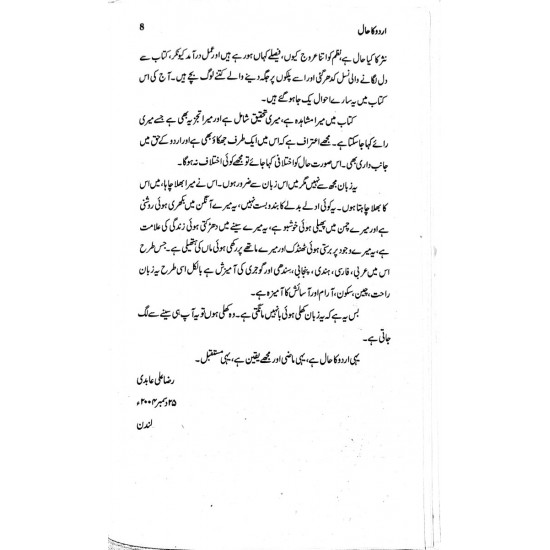 اردو کا حال
8
نثر کا کیا حال ہے، نظم کو اتنا عروج کیوں، فیصلے کہاں ہو رہے ہیں اور عمل درآمد کیونکر، کتاب سے
دل لگانے والی نسل کدھر گئی اور اسے پلکوں پر جگہ دینے والے کتنے لوگ بچے ہیں۔ آج کی اس
کتاب میں یہ سارے احوال یک جا ہو گئے ہیں۔
کتاب میں میرا مشاہدہ ہے، میری تحقیق شامل ہے اور میرا تجزیہ بھی ہے جسے میری
رائے کہا جا سکتا ہے۔ مجھے اعتراف ہے کہ اس میں ایک طرف جھکاؤ بھی ہے اور اردو کے حق میں
جانب داری بھی۔ اس صورت حال کو اختلافی کہا جائے تو مجھے کوئی اختلاف نہ ہوگا۔
یہ زبان مجھ سے نہیں مگر میں اس زبان سے ضرور ہوں۔ اس نے میرا بھلا چاہا، میں اس
کا بھلا چاہتا ہوں۔ یہ کوئی ادلے بدلے کا بندوبست نہیں، یہ میرے آنگن میں بکھری ہوئی روشنی
ہے اور میرے چمن میں پھیلی ہوئی خوشبو ہے، یہ میرے سینے میں دھڑکتی ہوئی زندگی کی علامت
ہے، یہ میرے وجود پر برستی ہوئی ٹھنڈک اور میرے ماتھے پر رکھی ہوئی ماں کی ہتھیلی ہے۔ جس طرح
اس میں عربی، فارسی، ہندی، پنجابی، سندھی اور گوجری کی آمیزش ہے بالکل اسی طرح یہ زبان
راحت، چین، سکون، آرام اور آسائش کا آمیزہ ہے۔
بس یہ ہے کہ یہ زبان کھلی ہوئی بانہیں مانگتی ہے۔ وہ کھلی ہوں تو یہ آپ ہی سینے سے لگ
جاتی ہے۔
یہی اردو کا حال ہے، یہی ماضی اور مجھے یقین ہے، یہی مستقبل۔
رضا علی عابدی
۲۵ دسمبر ۲۰۰۴ء
لندن